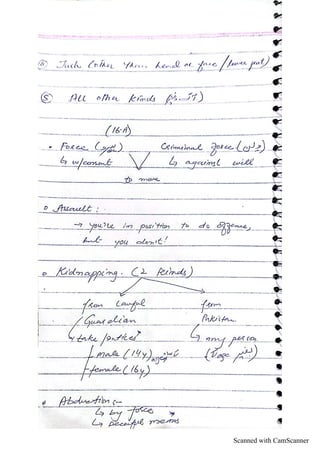 (other than head or face / lower part)
⑤ All other kinds
(16-A)
• Force Criminal force
↳ w/consent ↳ against will
to move
Assault :
→ you're in position to do offence,
but you don't!
Kidnapping. (2 kinds)
from lawful from
Guardian Pakistan
→ take/entice → any person
- male (14y)
- female (16y)
Abduction :-
↳ by force
↳ deceitful means
Scanned with CamScanner